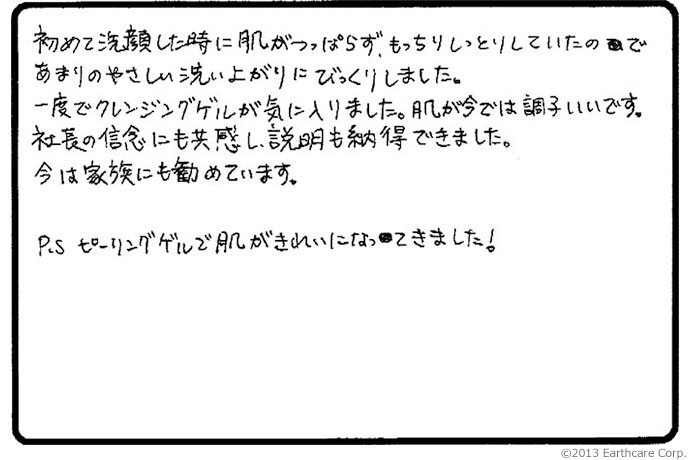 初めて洗顔した時に肌がつっぱらず、もっちりしっとりしていたので
あまりのやさしい洗い上がりにびっくりしました。
一度でクレンジングゲルが気に入りました。肌が今では調子いいです。
社長の信念にも共感し、説明も納得できました。
今は家族にも勧めています。
P.S ピーリングゲルで肌がきれいになってきました!
©2013 Earthcare Corp.